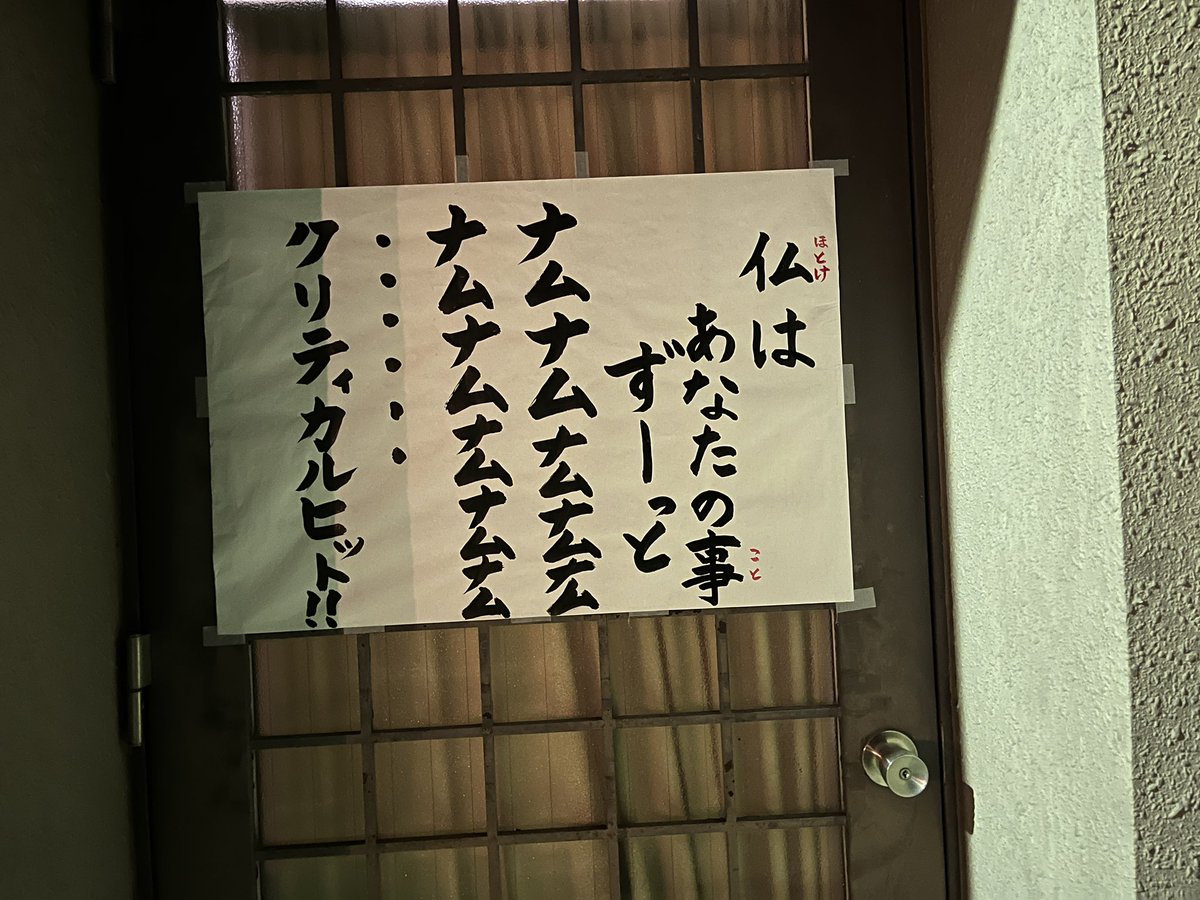 ほとけ
仏は
こと
あなたの事
ずーっと
ナムナムナムナムナム
ナムナムナムナムナム
・・・・・・
クリティカルヒット!!